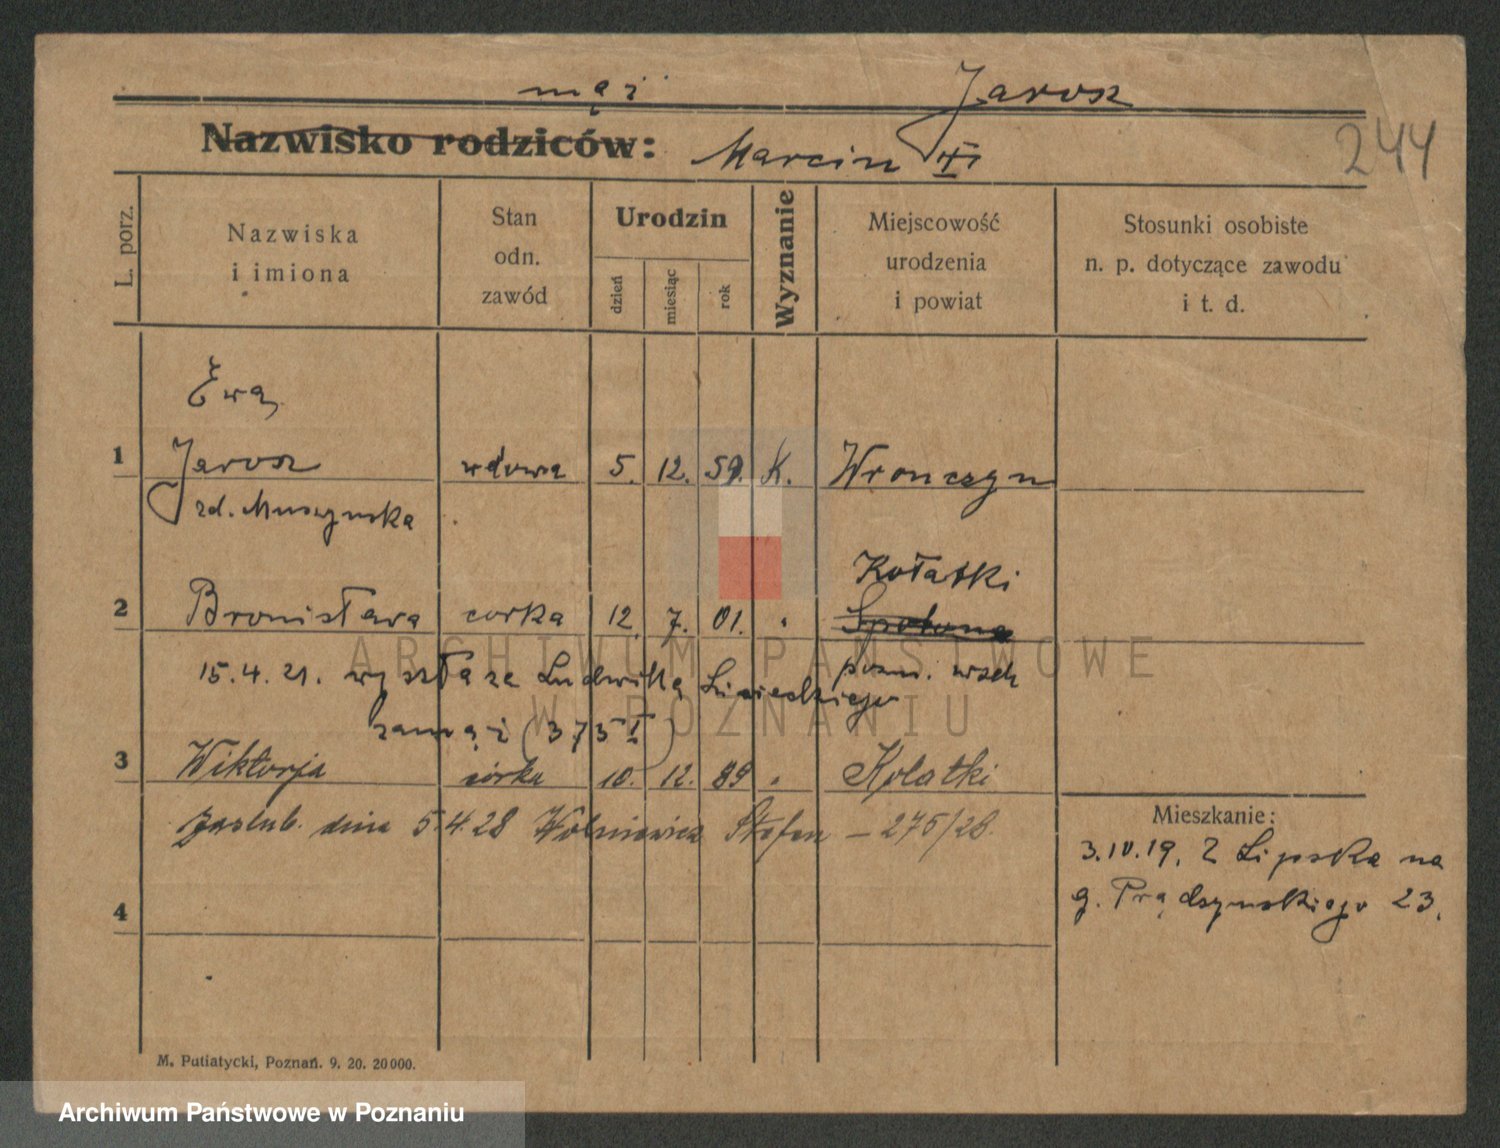 mąż Jarosz
Nazwisko rodziców: Marcin
244
L. porz.
Nazwiska
i imiona
Stan
odn.
zawód
Urodzin
dzień
miesiąc
rok
Wyznanie
Miejscowość
urodzenia
i powiat
Stosunki osobiste
n. p. dotyczące zawodu
i t. d.
Ewa
1 Jarosz wdowa 5. 12. 59. K. Wronczyn
zd. Muszynska
Kołatki
2 Bronisława corka 12. 7. 01. "
pozn. wsch
15.4.21. wyszła za Ludwika
zamąż (373 I)
3 Wiktorja córka 10. 12. 89 " Kołatki
zaślub. dnia 5.4.28 Wolniewicz Stefan – 275/28.
Mieszkanie:
3.IV.19. Z Lipska na
g. Prądzynskiego 23.
4
M. Putiatycki, Poznań. 9. 20. 20000.
ARCHIWUM PAŃSTWOWE
W POZNANIU
Archiwum Państwowe w Poznaniu